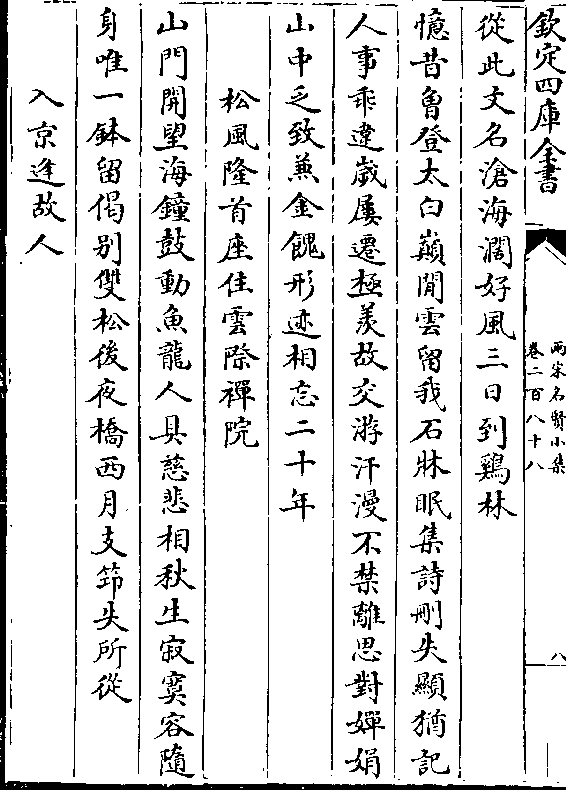 欽定四庫全書
兩宋名賢小集
卷二百八十八
八
從此文名滄海濶好風三日到鷄林
憶昔魯登太白巔閒雲留我石牀眠集詩刪失顯猶記
人事乖違歲屢遷極羨故交游汗漫不禁離思對嬋娟
山中乏致兼金餽形迹相忘二十年
松風隆首座住雲際禪院
山門開朢海鐘鼓動魚龍人具慈悲相秋生寂寞容隨
身唯一鉢留偈别雙松後夜橋西月支笻失所從
入京逢故人